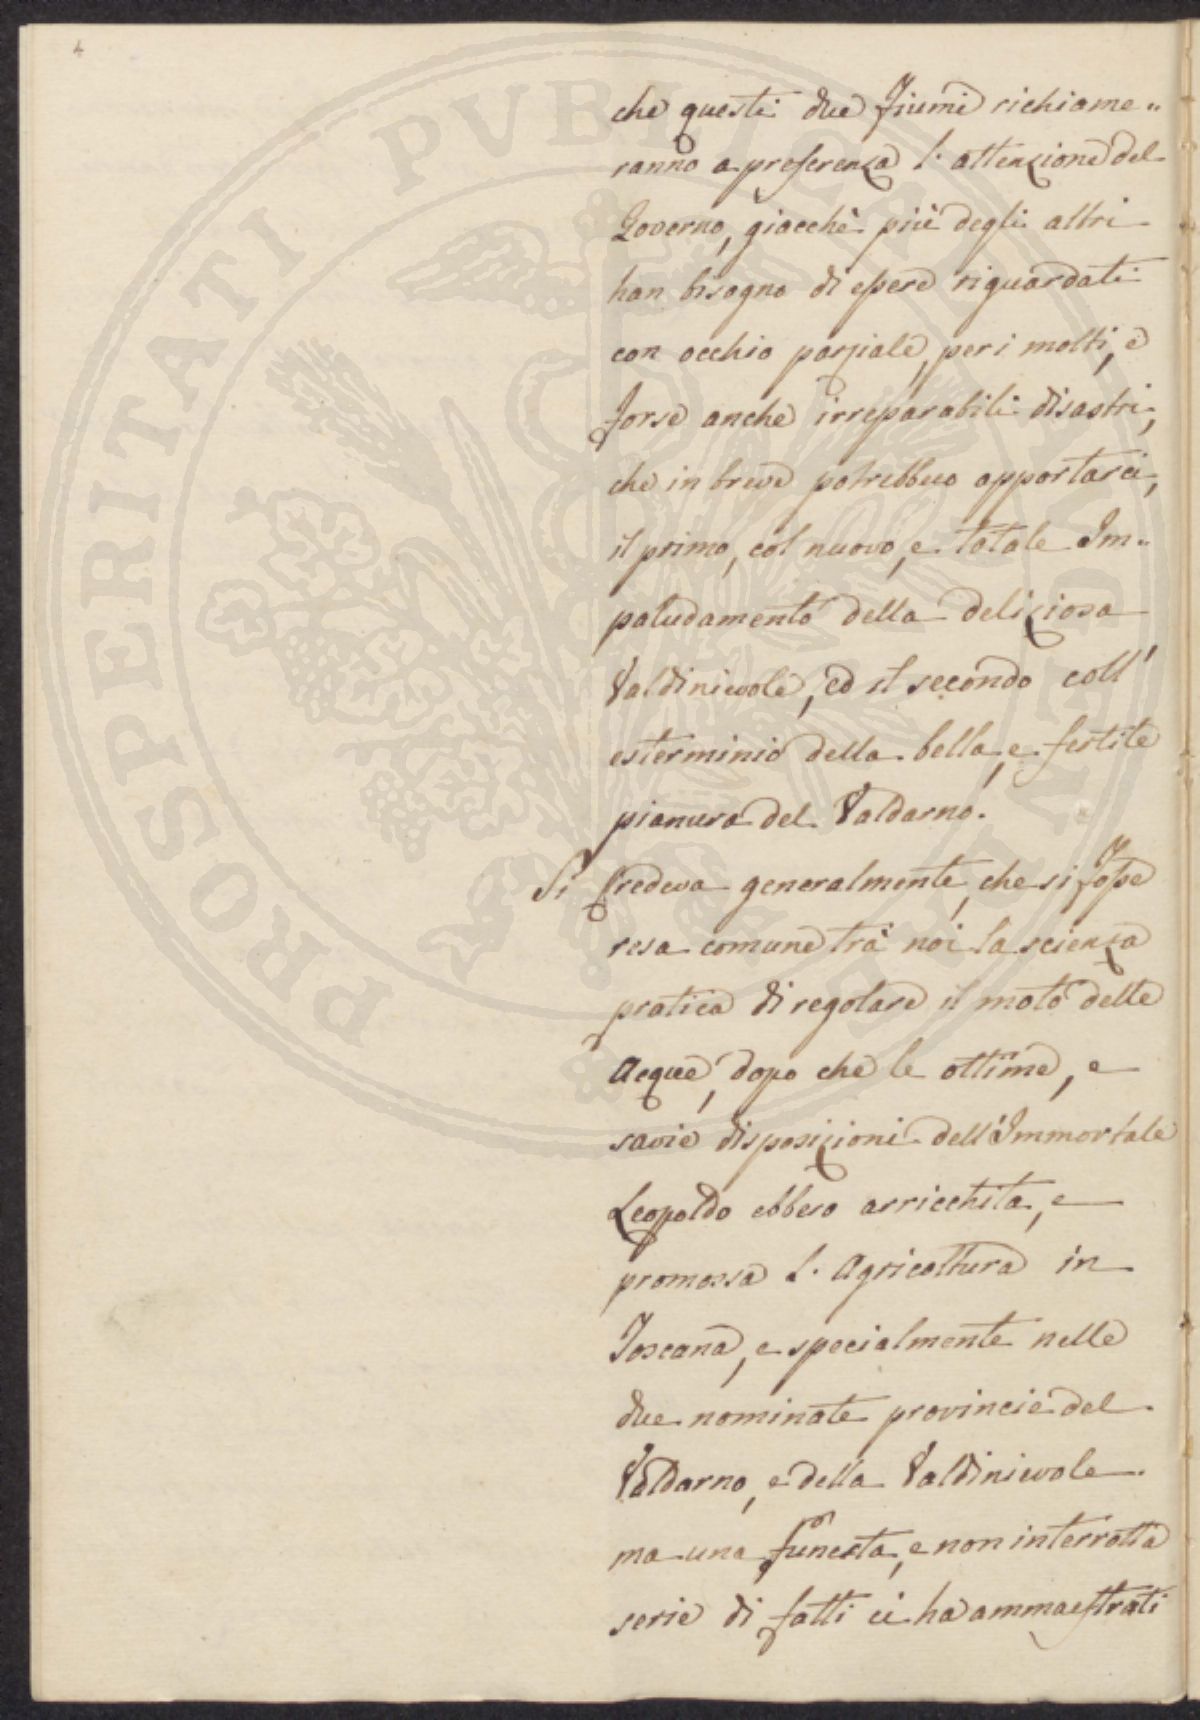 4
PROSPERITATI PVBLICAE AVGENDAE
che questi due Fiumi richiame„
ranno a preferenza l' attenzione del
Governo, giacchè più degli altri
han bisogno di essere riguardati
con occhio parziale, per i molti, e
forse anche irreparabili disastri,
che in breve potrebbero apportarci,
il primo, col nuovo, e totale Im„
paludamento della deliziosa
Valdinievole, ed il secondo coll'
esterminio della bella, e fertile
pianura del Valdarno.
Si Credeva generalmente, che si fosse
resa comune trà noi la scienza
pratica di regolare il moto delle
Acque, dopo che le ottime, e
savie disposizioni dell'Immortale
Leopoldo ebbero arricchita, e
promossa l' Agricoltura in
Toscana, e specialmente nelle
due nominate provincie del
Valdarno, e della Valdinievole
ma una funesta, e non interrotta
serie di fatti ci ha ammaestrati